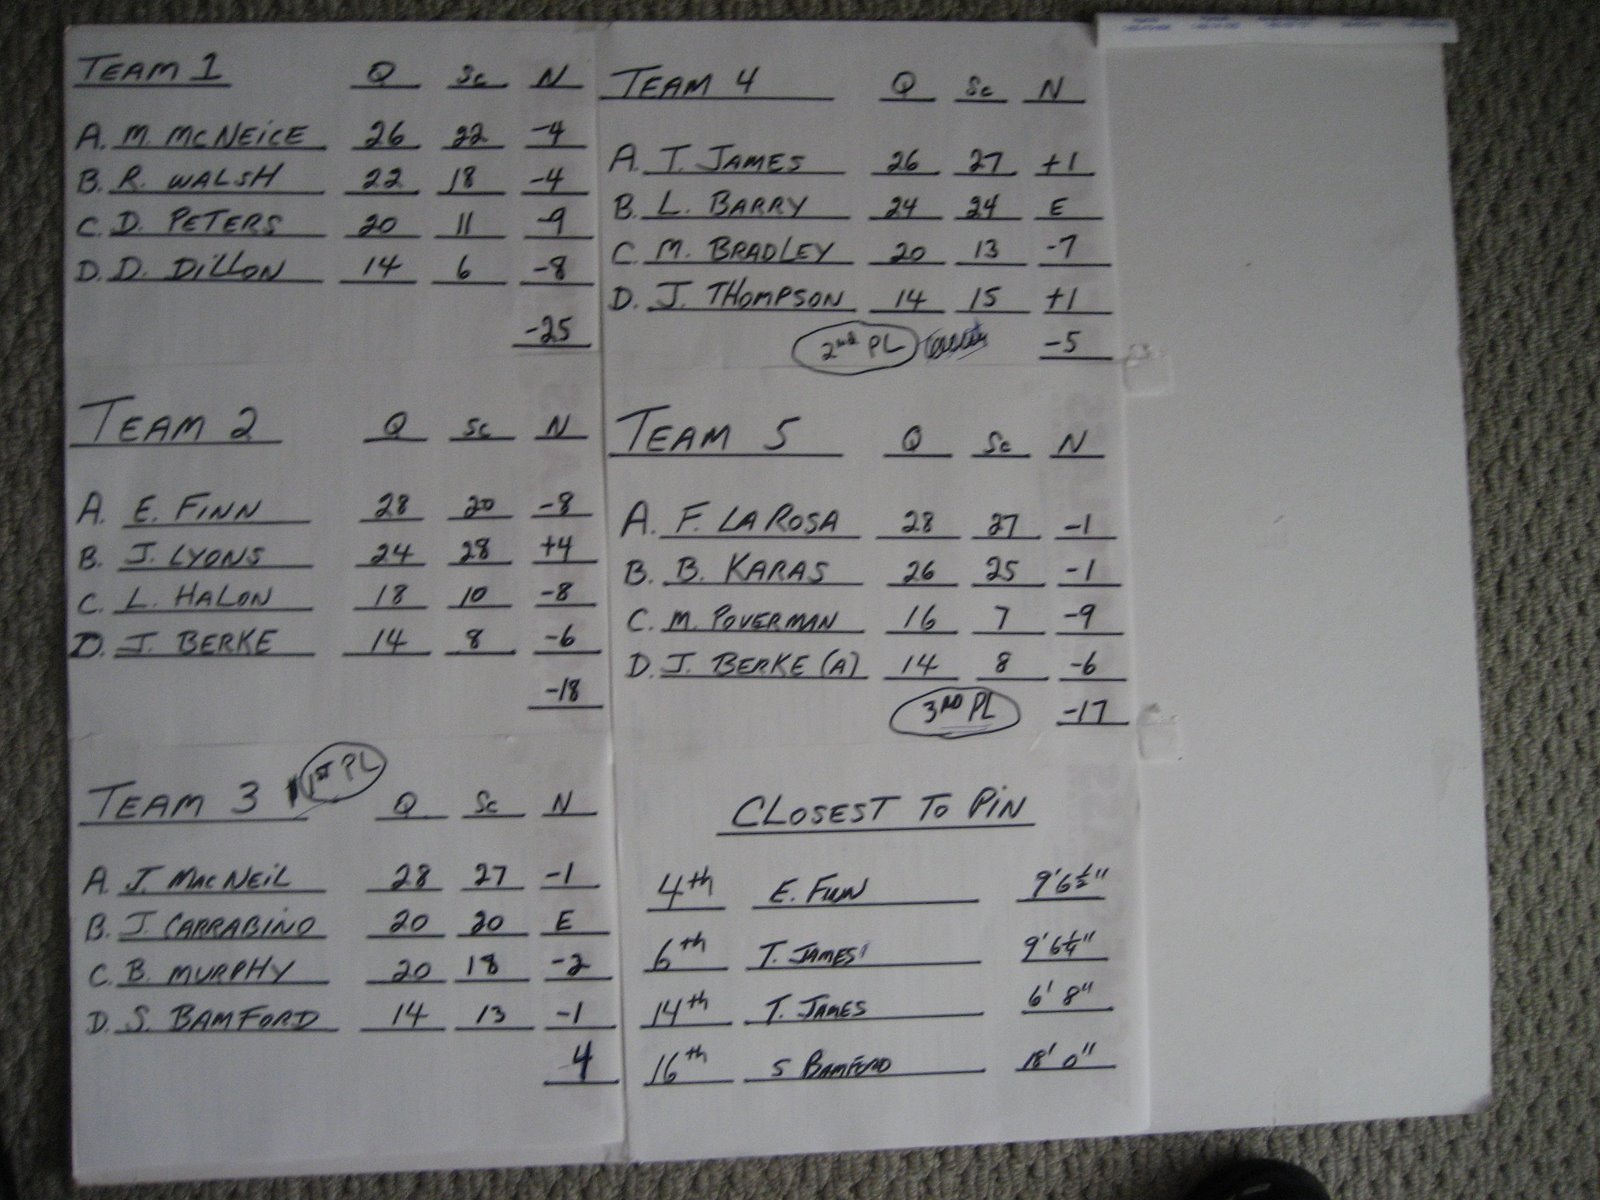 TEAM 1 Q Sc N
A. M. McNEICE 26 22 -4
B. R. WALSH 22 18 -4
C. D. PETERS 20 11 -9
D. D. DILLON 14 6 -8
-25
TEAM 2 Q Sc N
A. E. FINN 28 20 -8
B. J. LYONS 24 28 +4
C. L. HALON 18 10 -8
D. J. BERKE 14 8 -6
-18
TEAM 3 1ST PL Q Sc N
A. J. MACNEIL 28 27 -1
B. J. CARRABINO 20 20 E
C. B. MURPHY 20 18 -2
D. S. BAMFORD 14 13 -1
4
TEAM 4 Q Sc N
A. T. JAMES 26 27 +1
B. L. BARRY 24 24 E
C. M. BRADLEY 20 13 -7
D. J. THOMPSON 14 15 +1
2nd PL -5
TEAM 5 Q Sc N
A. F. LAROSA 28 27 -1
B. B. KARAS 26 25 -1
C. M. POVERMAN 16 7 -9
D. J. BERKE (A) 14 8 -6
3RD PL -17
CLOSEST TO PIN
4th E. FINN 9' 6 1/2"
6th T. JAMES 9' 6 1/4"
14th T. JAMES 6' 8"
16th S BAMFORD 18' 0"